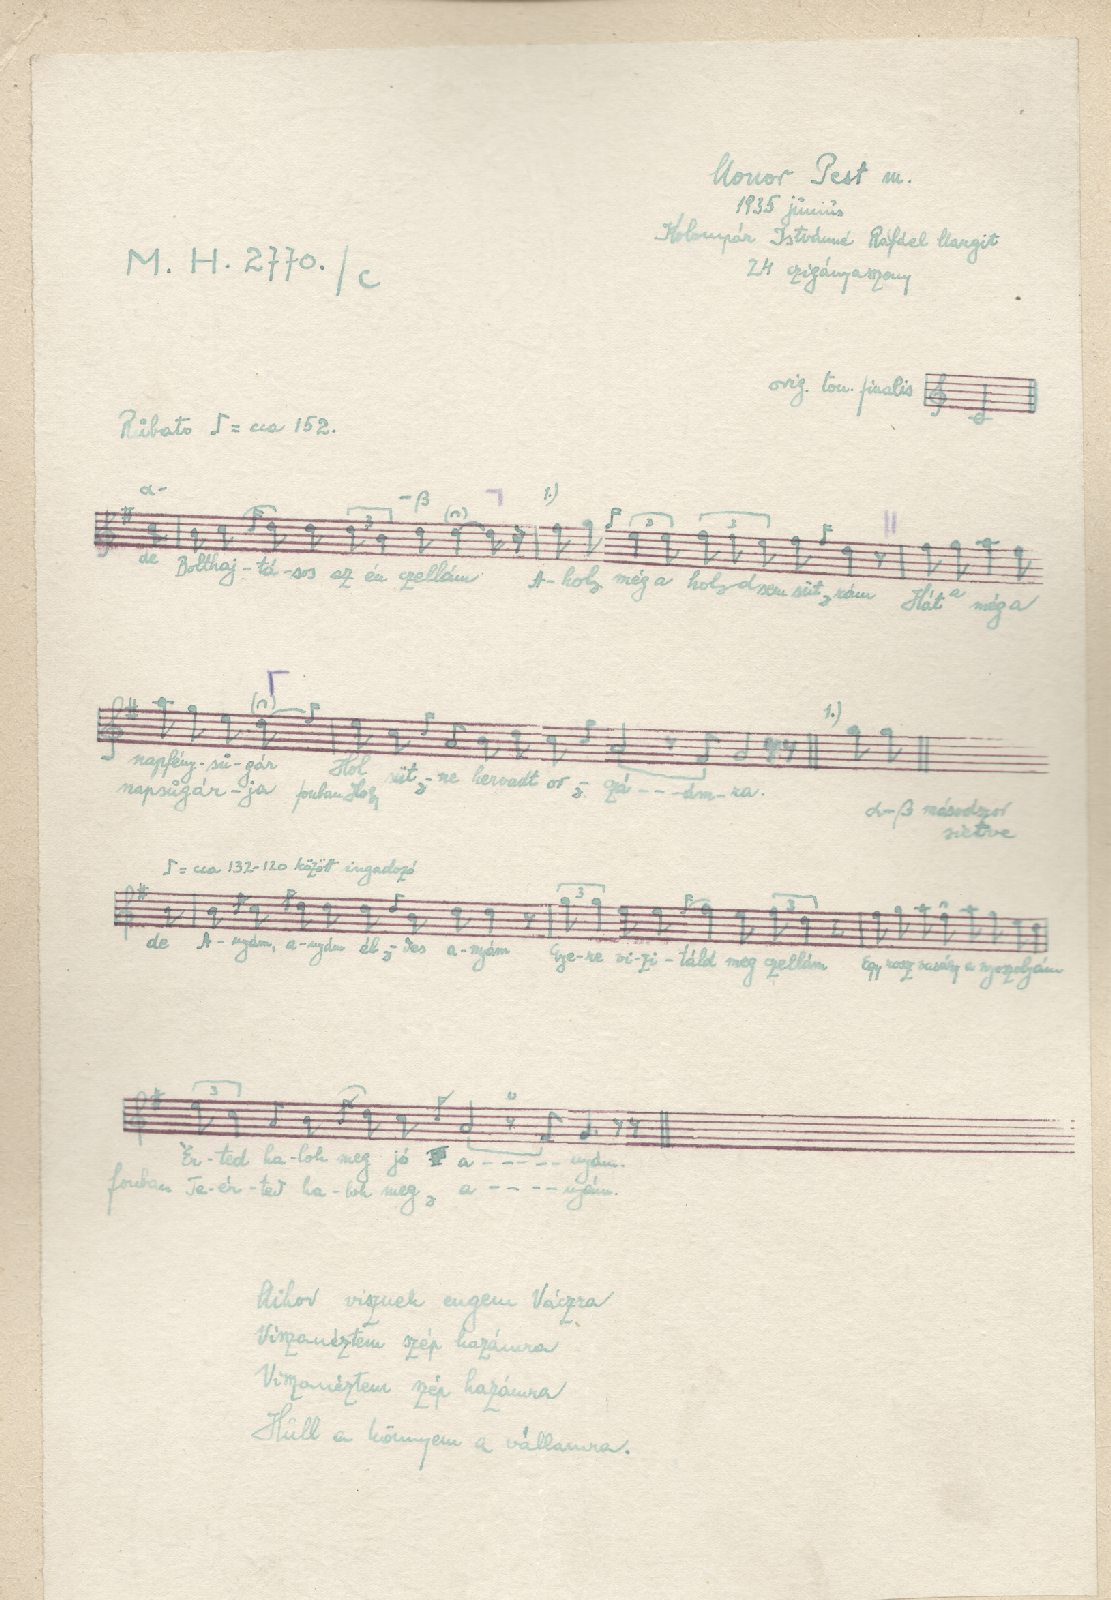 Monor Pest m.
1935 június
Kolompár Istvánné Ráfael Margit
24 czigányasszony
M. H. 2770./c
orig. ton. finalis
Rubato ♪ = cca 152.
α- -β 1.)
de Bolthaj-tá-sos az én czellám A-hol még a hold sem süt rám Hát a még a
1.)
napfény-su-gár Hol süt-ne hervadt or-czá---ám-ra.
napsugár-ja
α-β másodszor
sietve
♪ = cca 132-120 között ingadozó
de A-nyám, a-nyám éd-des a-nyám Gye-re vi-zi-táld meg czellám Egy rossz vaságy a nyoszolyám
Ér-ted ha-lok meg jó a-----nyám.
fonban Te-ér-ted ha-lok meg, a----nyám.
Mikor visznek engem Váczra
Visszanéztem szép hazámra
Visszanéztem szép hazámra
Hull a könnyem a vállamra.